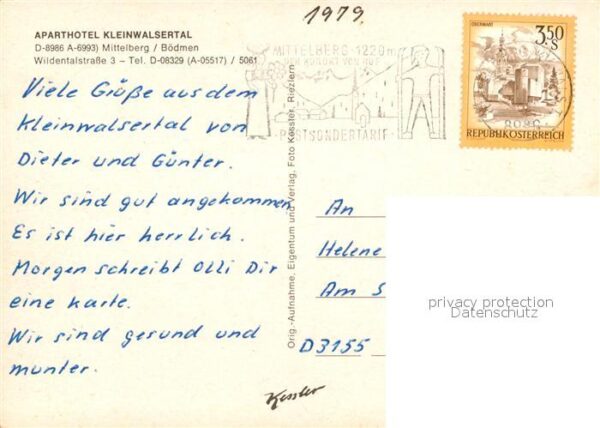 1979
APARTHOTEL KLEINWALSERTAL
D-8986 A-6993) Mittelberg / Bödmen
Wildentalstraße 3 – Tel. D-08329 (A-05517) / 5061
Viele Grüße aus dem
Kleinwalsertal von
Dieter und Günter.
Wir sind gut angekommen
Es ist hier herrlich.
Morgen schreibt Olli Dir
eine Karte.
Wir sind gesund und
munter.
MITTELBERG · 1220m
DER KURORT VON RUF
POSTSONDERTARIF
OBERWART
3,50
S
REPUBLIK ÖSTERREICH
Orig.-Aufnahme, Eigentum und Verlag, Foto Kessler, Riezlern
An
Helene
Am S
D3155
privacy protection
Datenschutz
Kessler